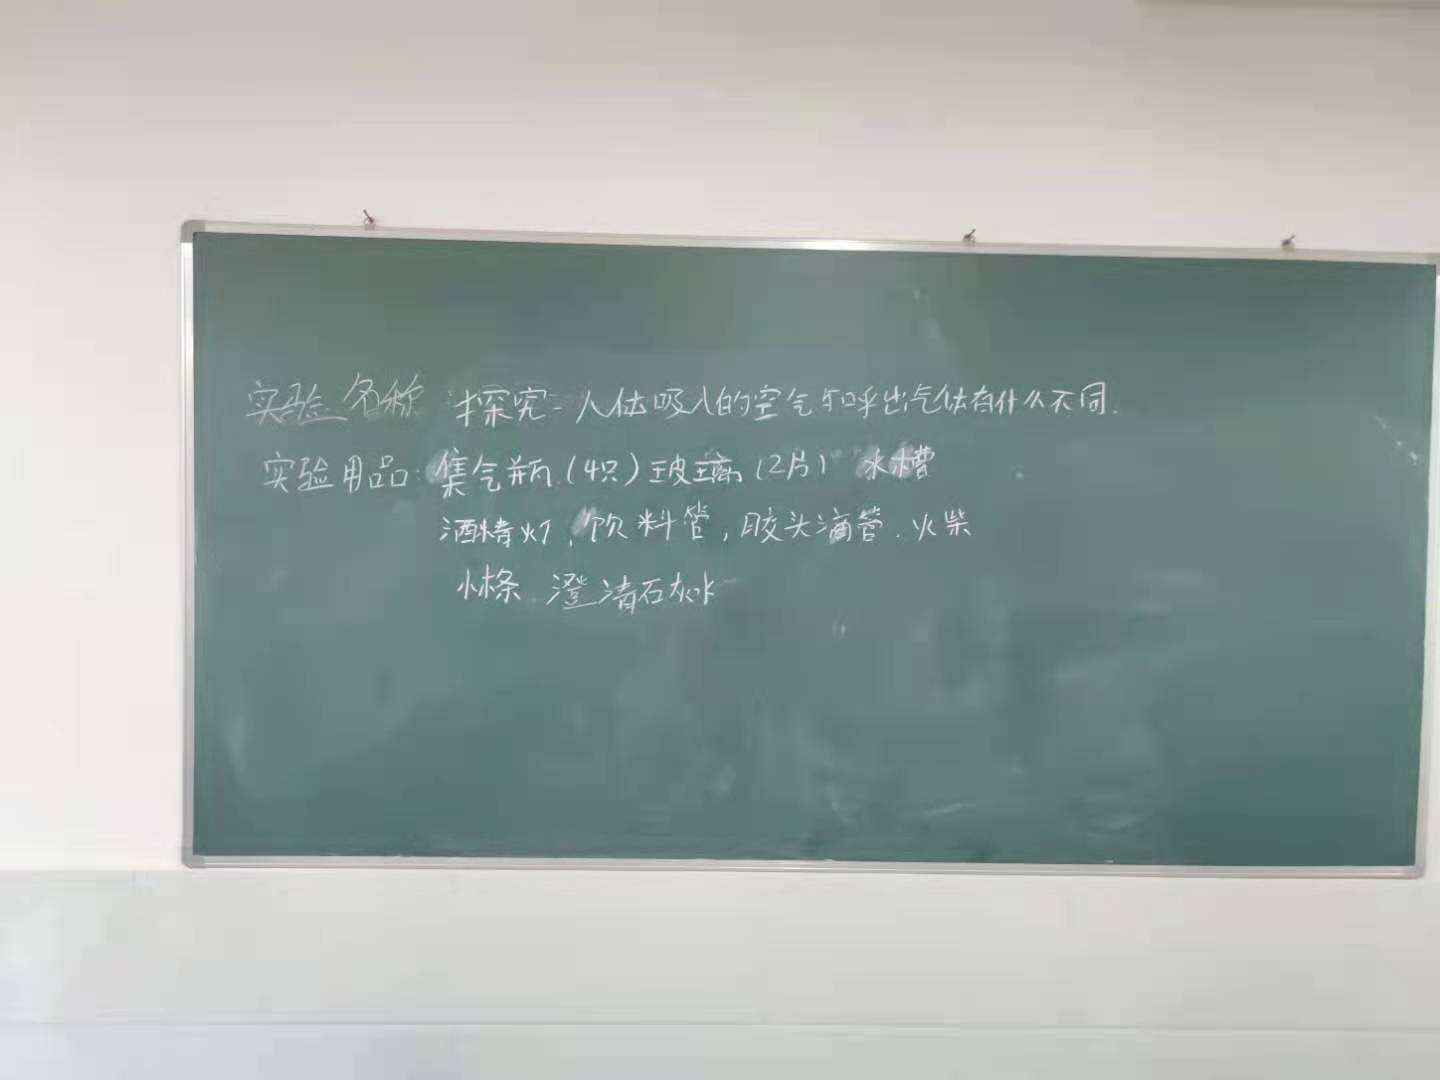 实验名称 探究二 人体吸入的空气和呼出气体有什么不同.
实验用品: 集气瓶(4只)玻璃(2片) 水槽
酒精灯、饮料管,胶头滴管.火柴
小木条 澄清石灰水